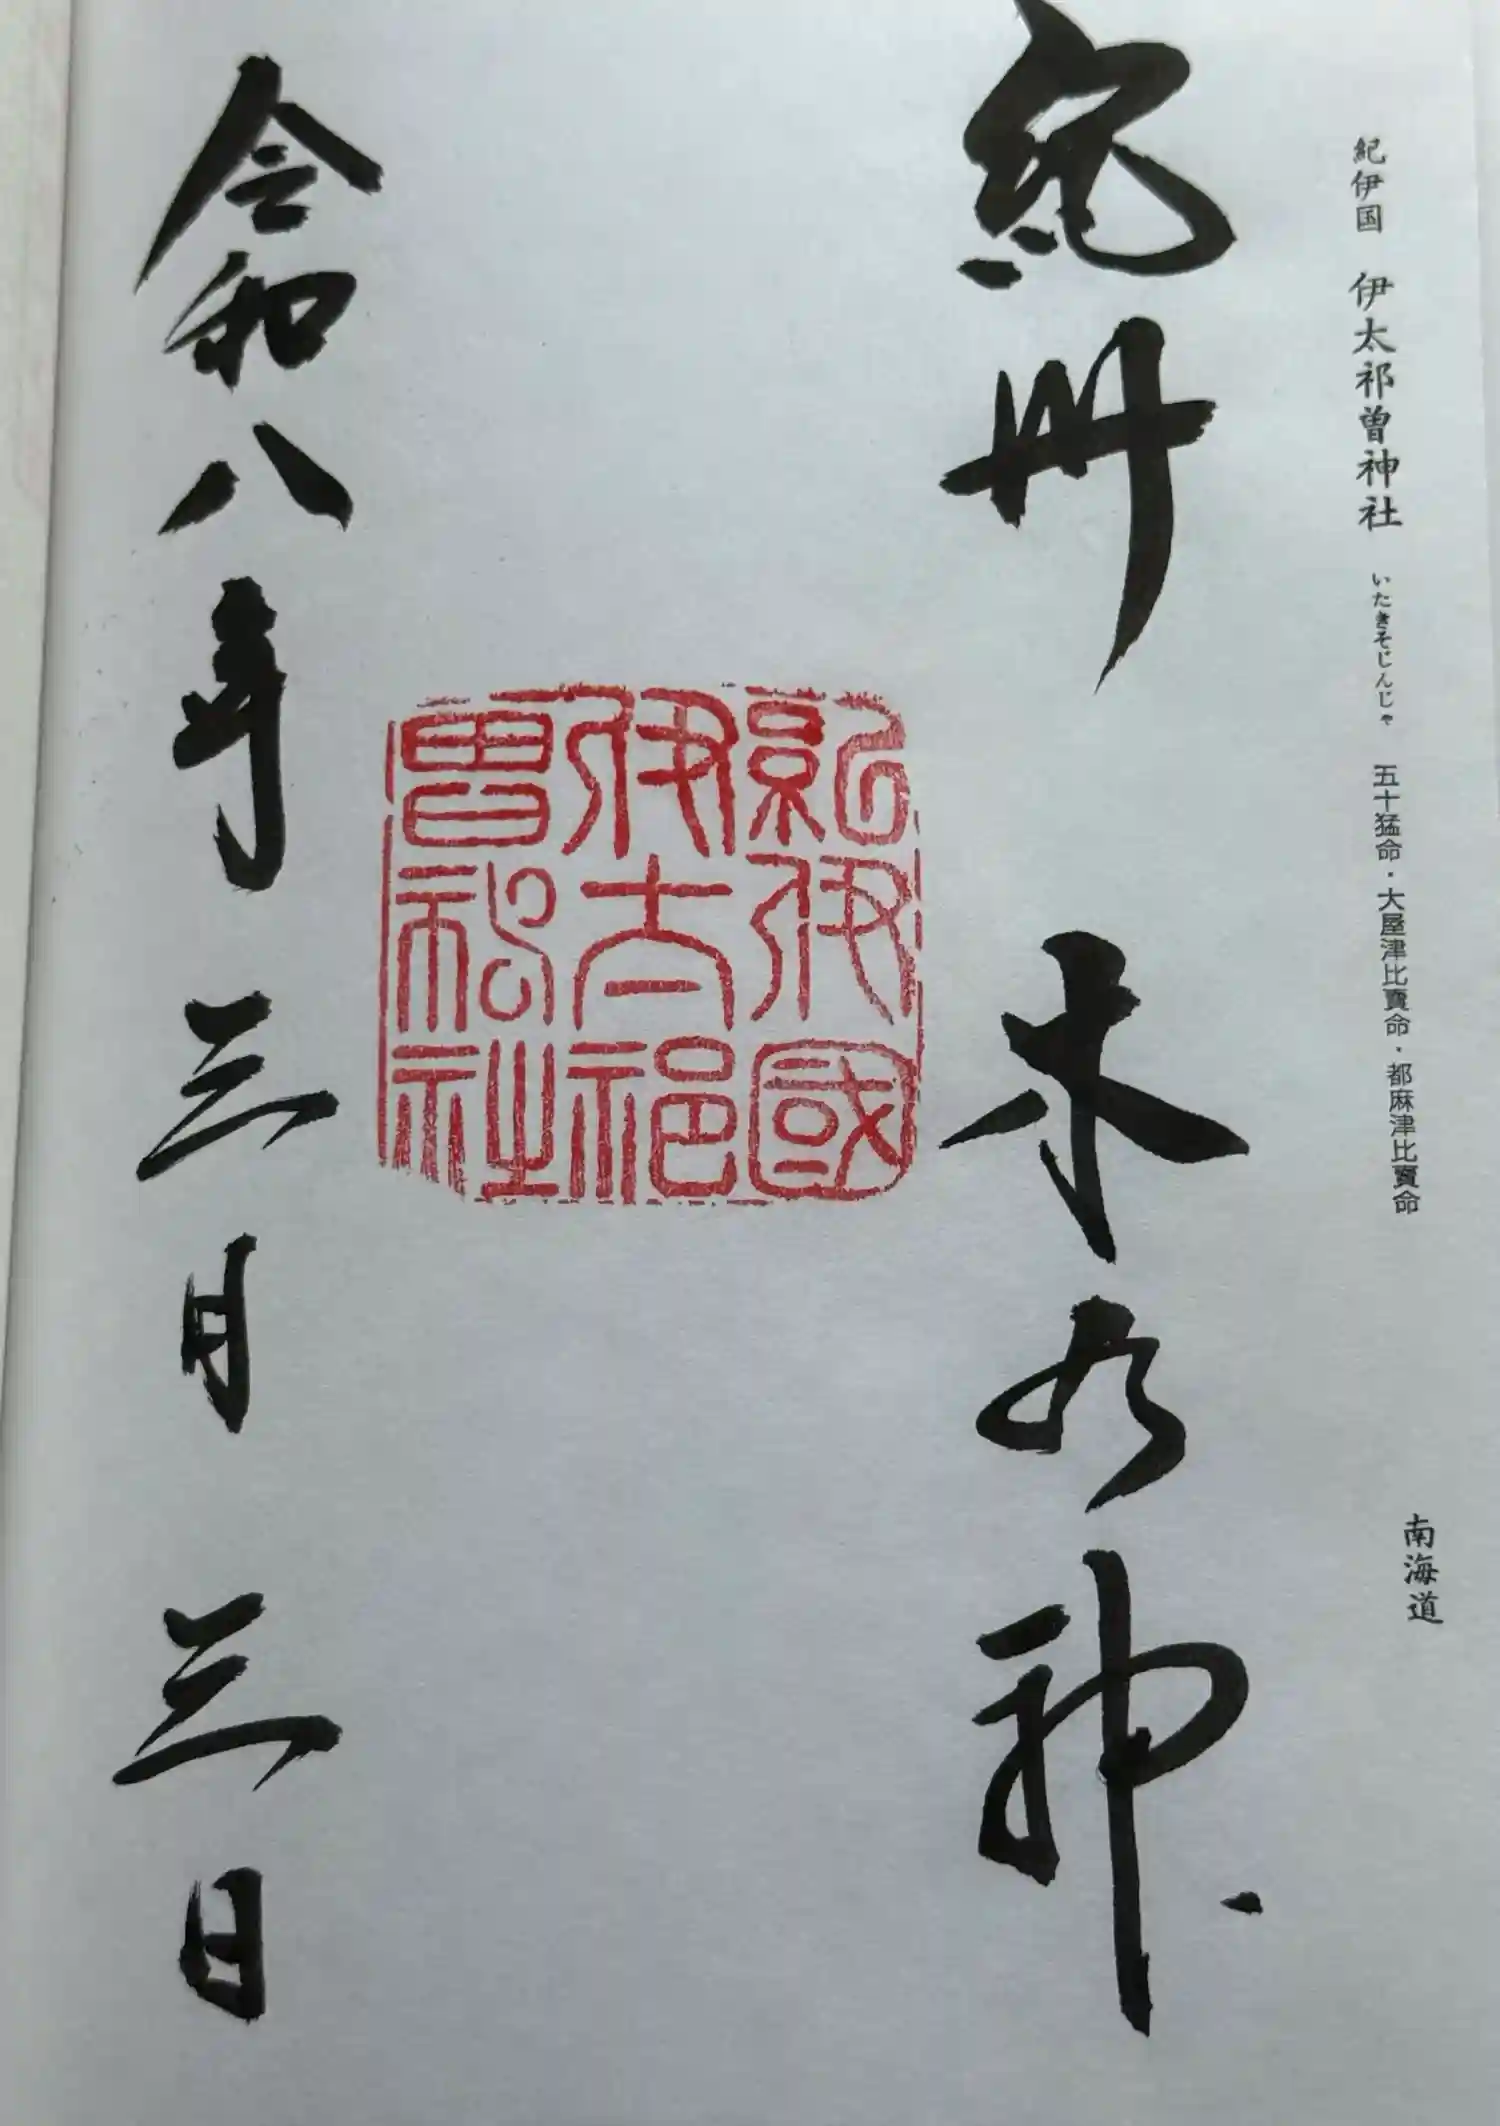 紀伊国 伊太祁曽神社 いたきそじんじゃ 五十猛命・大屋津比賣命・都麻津比賣命
南海道
紀州 木の神
紀伊國
伊太祁
曽神社
令和八年三月三日